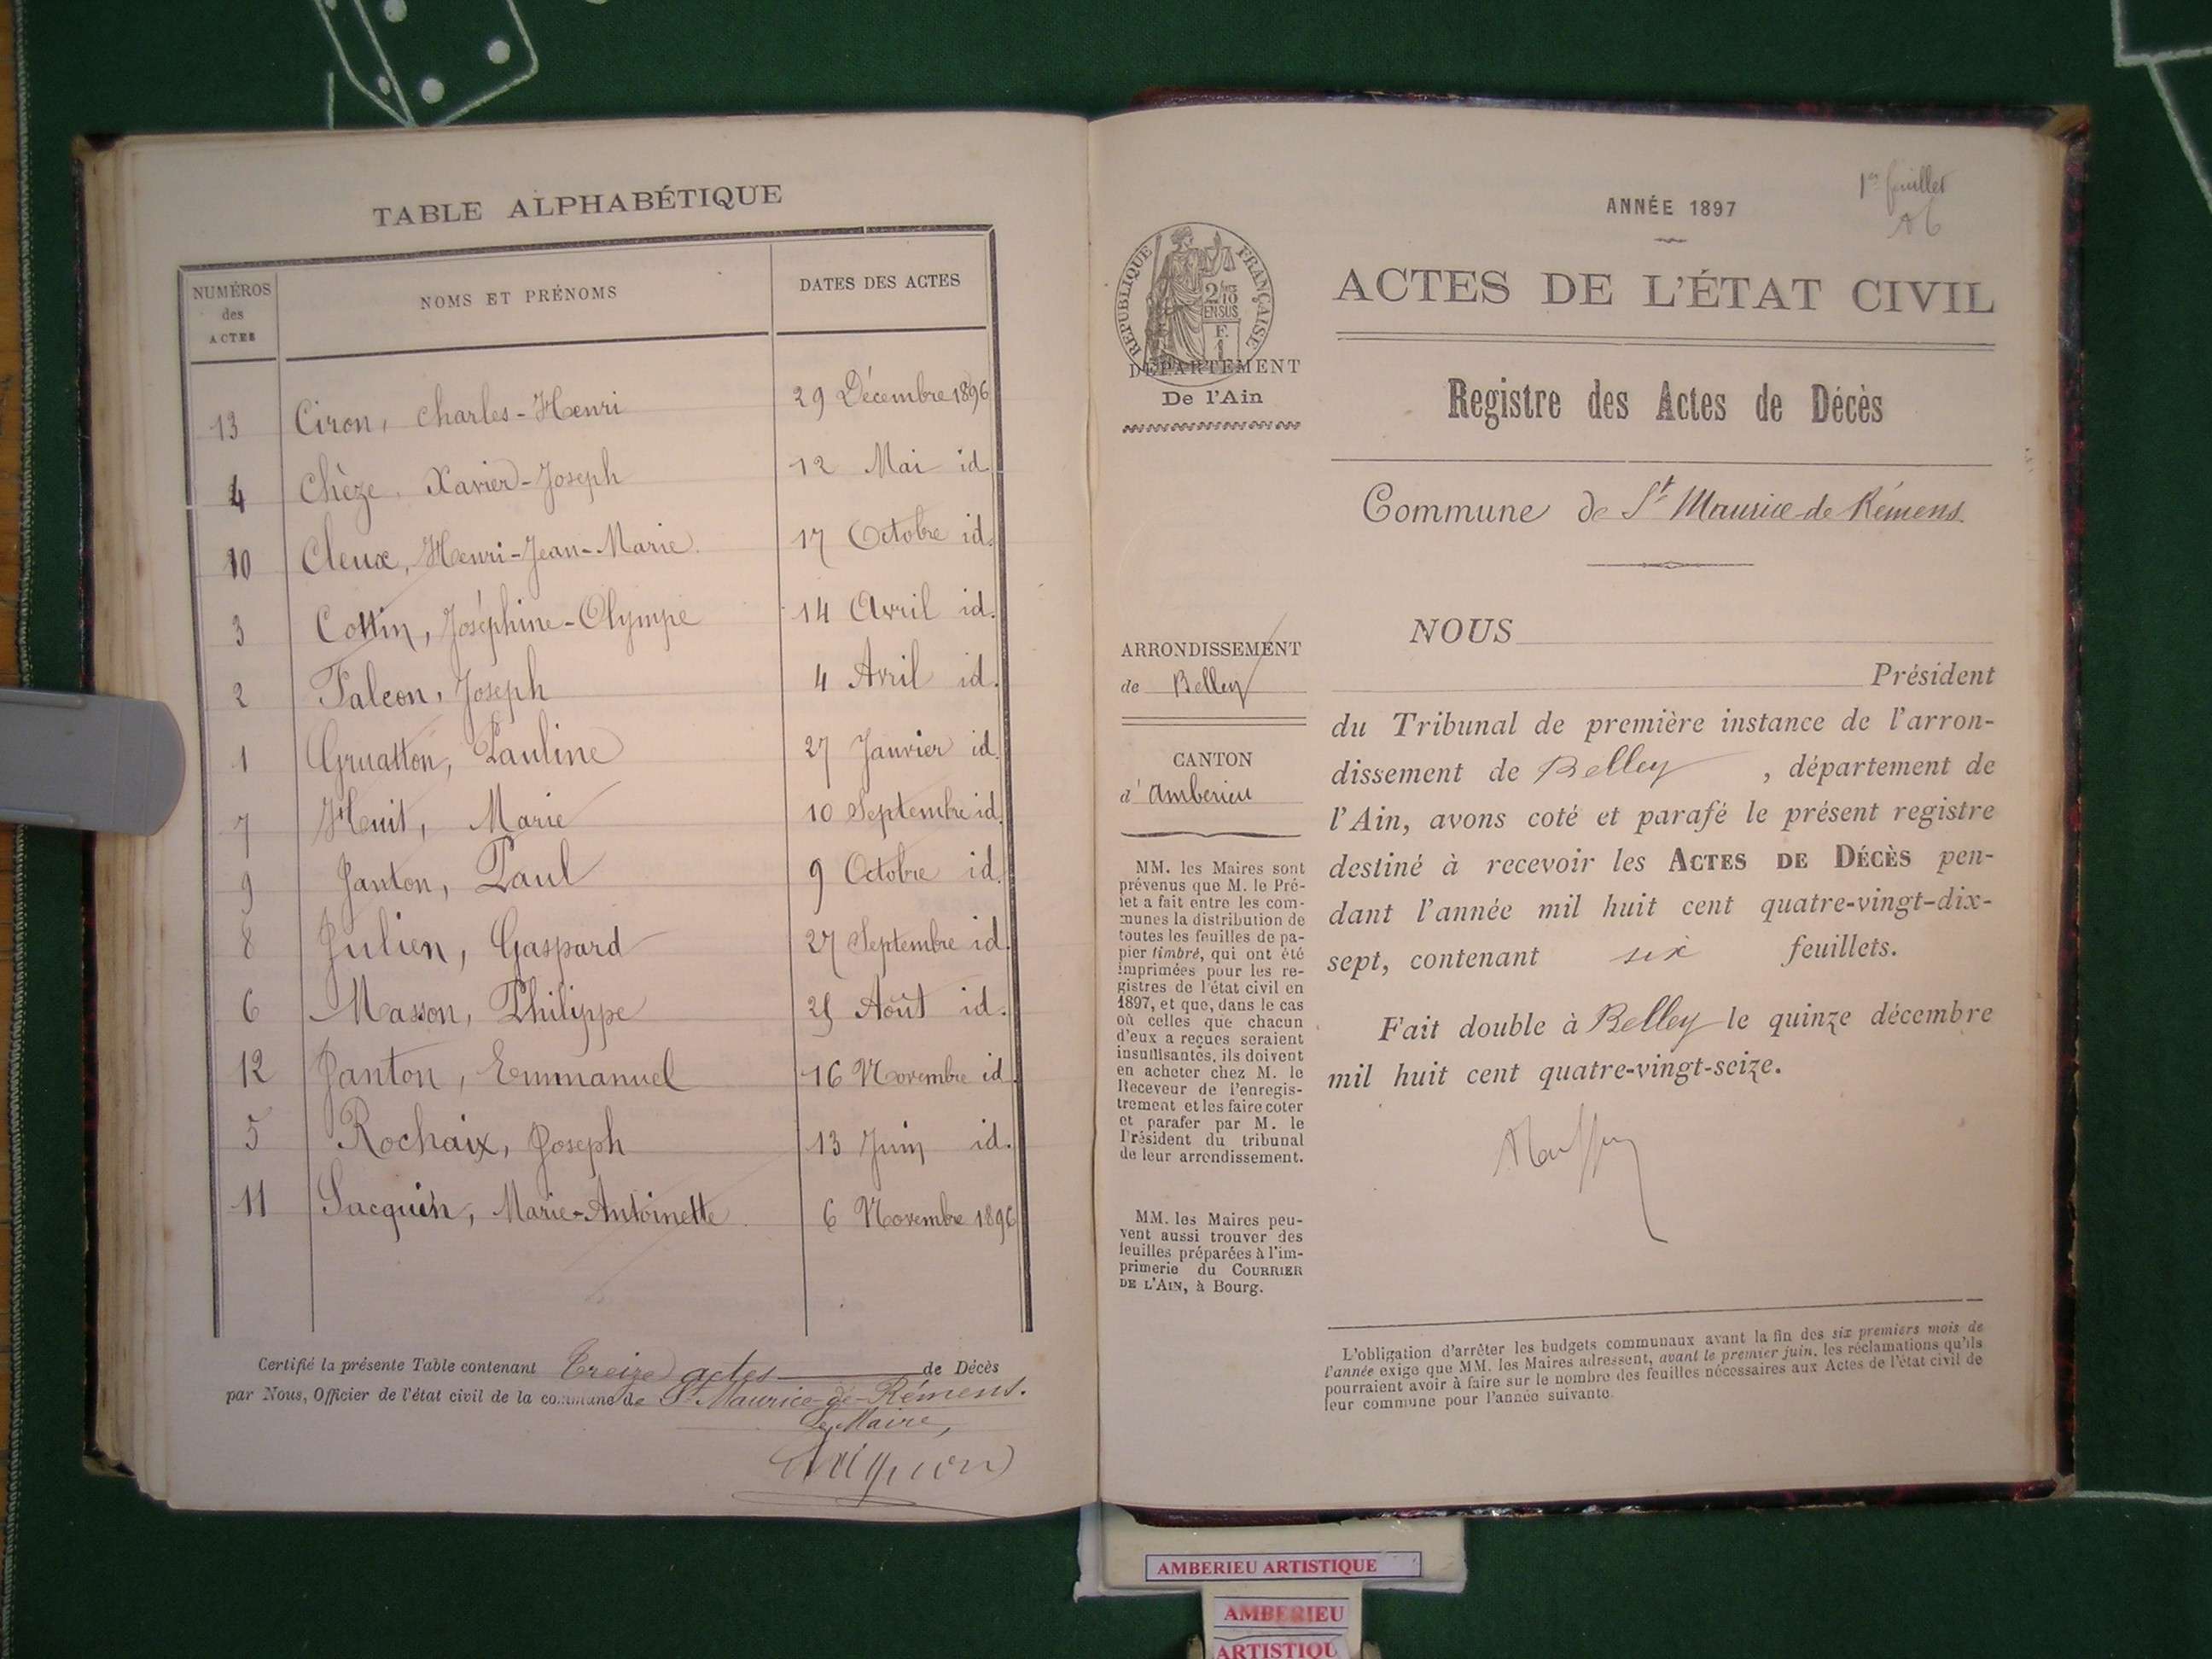 TABLE ALPHABÉTIQUE
NUMÉROS des ACTES NOMS ET PRÉNOMS DATES DES ACTES
13 Ciron, Charles-Henri 29 Décembre 1896
4 Chèze, Xavier-Joseph 12 Mai id.
10 Cleux, Henri-Jean-Marie. 17 Octobre id.
3 Cottin, Joséphine-Olympe 14 Avril id.
2 Falcon, Joseph 4 Avril id.
1 Gruatton, Pauline 27 Janvier id.
7 Huit, Marie 10 Septembre id.
9 Janton, Paul 9 Octobre id.
8 Julien, Gaspard 27 Septembre id.
6 Masson, Philippe Août id.
12 Panton, Emmanuel 16 Novembre id.
5 Rochaix, Joseph 13 Juin id.
11 Sacquin, Marie-Antoinette 6 Novembre 1896
Certifié la présente Table contenant treize actes de Décès
par Nous, Officier de l'état civil de la commune de St Maurice-de-Rémens.
Le Maire,
1er feuillet
ANNÉE 1897
RÉPUBLIQUE FRANÇAISE
2/10 EN SUS
F. 1
ACTES DE L'ÉTAT CIVIL
DÉPARTEMENT
De l'Ain
Registre des Actes de Décès
Commune de St Maurice de Rémens.
ARRONDISSEMENT
de Belley
CANTON
d' Amberieu
MM. les Maires sont
prévenus que M. le Pré-
fet a fait entre les com-
munes la distribution de
toutes les feuilles de pa-
pier timbré, qui ont été
imprimées pour les re-
gistres de l'état civil en
1897, et que, dans le cas
où celles que chacun
d'eux a reçues seraient
insuffisantes, ils doivent
en acheter chez M. le
Receveur de l'enregis-
trement et les faire coter
et parafer par M. le
Président du tribunal
de leur arrondissement.
MM. les Maires peu-
vent aussi trouver des
feuilles préparées à l'im-
primerie du COURRIER
DE L'AIN, à Bourg.
NOUS
Président
du Tribunal de première instance de l'arron-
dissement de Belley, département de
l'Ain, avons coté et parafé le présent registre
destiné à recevoir les ACTES DE DÉCÈS pen-
dant l'année mil huit cent quatre-vingt-dix-
sept, contenant six feuillets.
Fait double à Belley le quinze décembre
mil huit cent quatre-vingt-seize.
L'obligation d'arrêter les budgets communaux avant la fin des six premiers mois de
l'année exige que MM. les Maires adressent, avant le premier juin, les réclamations qu'ils
pourraient avoir à faire sur le nombre des feuilles nécessaires aux Actes de l'état civil de
leur commune pour l'année suivante.
AMBERIEU ARTISTIQUE
AMBERIEU
ARTISTIQU